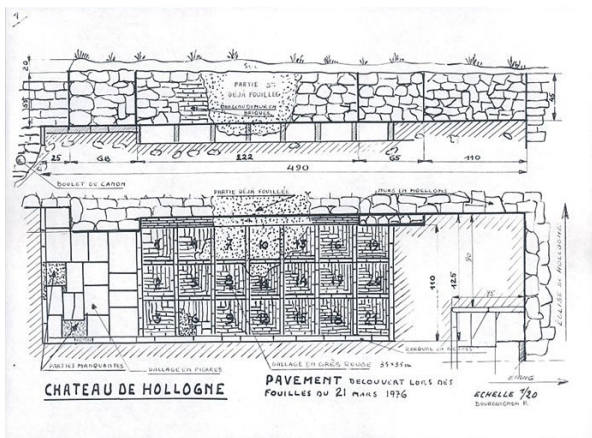 PARTIE
DÉJÀ FOUILLEE
BRIQUES
20
25
68
122
65
110
490
BOULET DE CANON
PARTIE DÉJÀ FOUILLÉE
MURS EN MOELLONS
1 4 7 10 13 16 19
2 5 8 11 14 17 20
3 6 9 12 15 18 21
110
125
90
75
EGLISE DE HOLLOGNE
PARTIES MANQUANTES
DALLAGE EN PIERRES
DALLAGE EN GRÈS ROUGE 35x35cm
ETANG
CHATEAU DE HOLLOGNE
PAVEMENT DECOUVERT LORS DES
FOUILLES DU 21 MARS 1976
ECHELLE 1/20
BOURGUIGNON R.